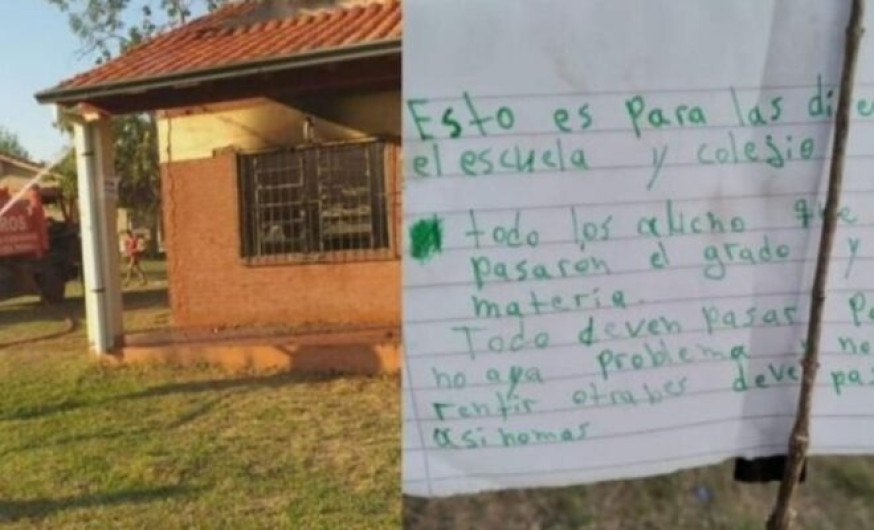 Esto es para las dire
el escuela y colesio
todo los alucho que
pasaron el grado y
materia.
Todo deven pasar Pa
no aya problema y no
rentir otrabes deve pas
asi nomas